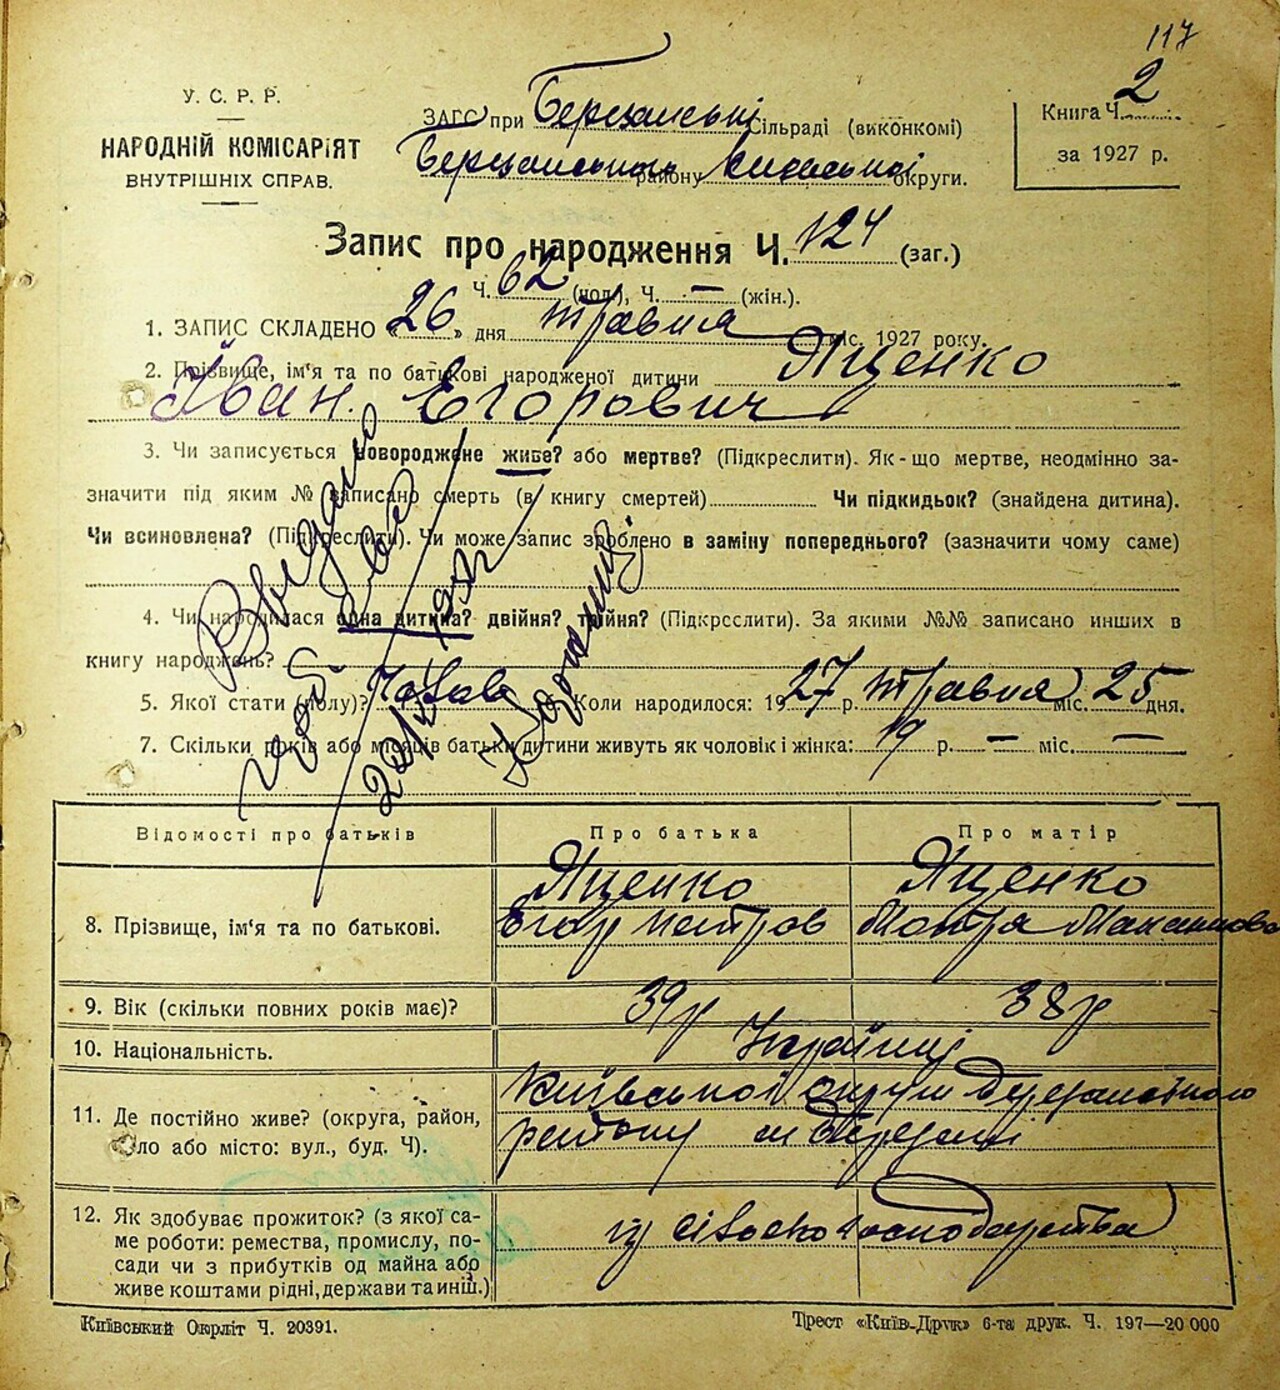 117
У. С. Р. Р.
НАРОДНІЙ КОМІСАРІЯТ
ВНУТРІШНІХ СПРАВ.
ЗАГС при Березанські Сільраді (виконкомі)
Березанського району Київської округи.
Книга Ч. 2
за 1927 р.
Запис про народження Ч. 124 (заг.)
Ч. 62 (чол.), Ч. — (жін.).
1. ЗАПИС СКЛАДЕНО «26» дня травня міс. 1927 року.
2. Прізвище, ім'я та по батькові народженої дитини Яценко
Іван Егорович
3. Чи записується новороджене живе? або мертве? (Підкреслити). Як-що мертве, неодмінно за-
значити під яким № записано смерть (в книгу смертей) Чи підкидьок? (знайдена дитина).
Чи всиновлена? (Підкреслити). Чи може запис зроблено в заміну попереднього? (зазначити чому саме)
4. Чи народилася одна дитина? двійня? трійня? (Підкреслити). За якими №№ записано инших в
книгу народжень?
5. Якої стати (полу)? Чолов Коли народилося: 1927 р. травня міс. 25 дня.
7. Скільки років або місяців батьки дитини живуть як чоловік і жінка: 19 р. — міс. —
Видано
Відомості про батьків
Про батька
Про матір
8. Прізвище, ім'я та по батькові.
Яценко
Егор Петров
Яценко
Мотря
9. Вік (скільки повних років має)?
39 р
38 р
10. Національність.
Українці
11. Де постійно живе? (округа, район,
село або місто: вул., буд. Ч).
Київської округи Березанського
району м Березані
12. Як здобуває прожиток? (з якої са-
ме роботи: ремества, промислу, по-
сади чи з прибутків од майна або
живе коштами рідні, держави та инш.)
із сільского господарства
Київський Окрліт Ч. 20391.
Трест «Київ-Друк» 6-та друк. Ч. 197—20 000